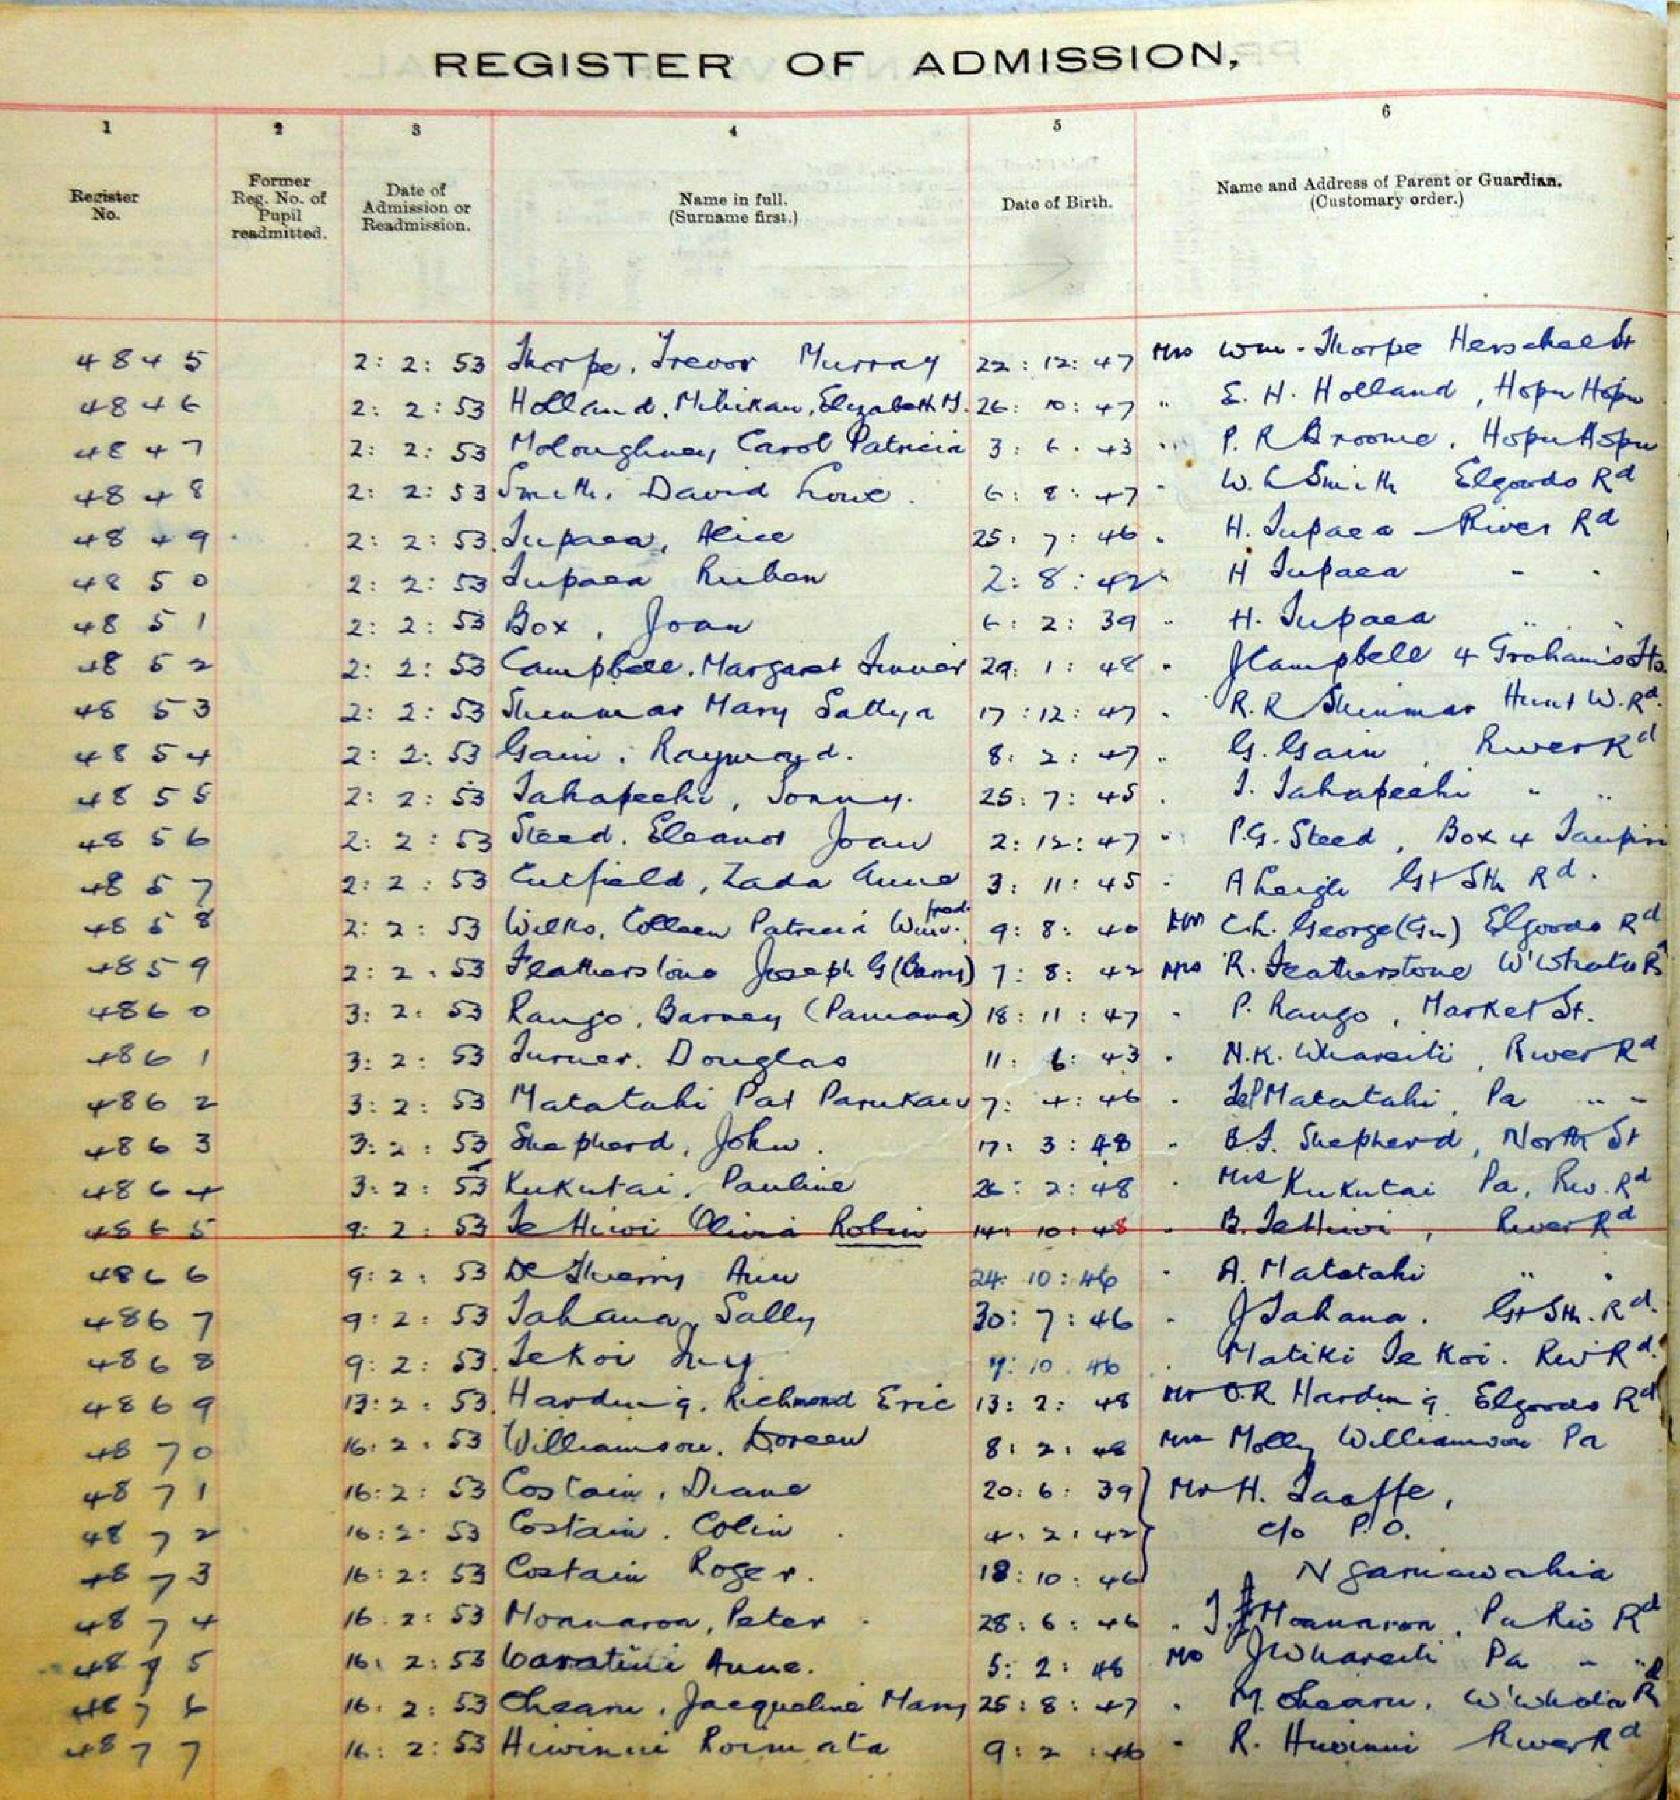 REGISTER OF ADMISSION,
1 2 3 4 5 6
Register No. Former Reg. No. of Pupil readmitted. Date of Admission or Readmission. Name in full. (Surname first.) Date of Birth. Name and Address of Parent or Guardian. (Customary order.)
4845 2: 2: 53 Thorpe, Trevor Murray 22: 12: 47 Mrs Wm. Thorpe Herschel St
4846 2: 2: 53 Holland, Elizabeth 26: 10: 47 " E. H. Holland, Hopu Hopu
4847 2: 2: 53 Moloughney Carol Patricia 3: 6: 43 " P. R Broome. Hopu Hopu
4848 2: 2: 53 Smith. David Lowe. 6: 8: 47 " W. L Smith Elgoods Rd
4849 2: 2: 53 Tupaea, Alice 25: 7: 46 " H. Tupaea River Rd
4850 2: 2: 53 Tupaea Ruben 2: 8: 42 " H Tupaea " "
4851 2: 2: 53 Box, Joan 6: 2: 39 " H. Tupaea " "
4852 2: 2: 53 Campbell. Margaret 29: 1: 48 " J Campbell 4 Graham's
4853 2: 2: 53 Shinmar Mary 17: 12: 47 " R. R Shinmar Hunt W. Rd.
4854 2: 2: 53 Gain, Raymond. 8: 2: 47 " G. Gain, River Rd
4855 2: 2: 53 Tahapeehi, Sonny. 25: 7: 45 " T. Tahapeehi " "
4856 2: 2: 53 Steed. Eleanor Joan 2: 12: 47 " P.G. Steed, Box 4 Taupiri
4857 2: 2: 53 Cutfield, Zada Anne 3: 11: 45 " A Leigh Gt Sth Rd.
4858 2: 2: 53 Wilks, Colleen Patricia 9: 8: 40 Mrs C.L. George (Gn) Elgoods Rd
4859 2: 2: 53 Featherstone Joseph G 7: 8: 42 Mrs R. Featherstone W'Whata Rd
4860 3: 2: 53 Rango, Barney (Pamana) 18: 11: 47 " P. Rango, Market St.
4861 3: 2: 53 Turner. Douglas 11: 6: 43 " N.K. Whareiti, River Rd
4862 3: 2: 53 Matatahi Pat Parukau 7: 4: 46 " Matatahi, Pa " "
4863 3: 2: 53 Shepherd, John. 17: 3: 48 " B.J. Shepherd, North St
4864 3: 2: 53 Kukutai. Pauline 26: 2: 48 " Mrs Kukutai Pa, Riv. Rd
4865 9: 2: 53 Te Hiwi Olivia Robin 14: 10: 48 " B. Te Hiwi, River Rd
4866 9: 2: 53 De Thierry Ann 24: 10: 46 " A. Matatahi " "
4867 9: 2: 53 Tahana, Sally 30: 7: 46 " J Tahana. Gt Sth. Rd.
4868 9: 2: 53 Te Koi 7: 10. 46 " Matiki Te Koi. Riv Rd.
4869 13: 2: 53 Harding. Richmond Eric 13: 2: 48 Mr O.R Harding Elgoods Rd
4870 16: 2: 53 Williamson. Doreen 8: 2: 48 Mrs Molly Williamson Pa
4871 16: 2: 53 Costain, Diane 20: 6: 39 Mr H. Taaffe,
4872 16: 2: 53 Costain. Colin 4: 2: 42 c/o P.O.
4873 16: 2: 53 Costain Roger. 18: 10: 46 Ngaruawahia
4874 16: 2: 53 Moanaroa, Peter 28: 6: 46 " T. Moanaroa, Pukio Rd
4875 16: 2: 53 Waratini Anne. 5: 2: 48 Mo J Whareiti Pa " "
4876 16: 2: 53 Ohearn, Jacqueline Mary 25: 8: 47 " M. Ohearn, W'Whata R
4877 16: 2: 53 Hiwinui Roimata 9: 2: 46 " R. Hiwinui River Rd